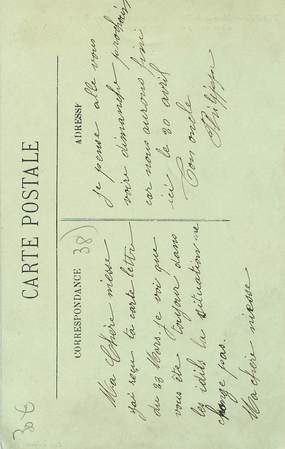 CARTE POSTALE
CORRESPONDANCE
38)
Ma Chère niesse
j'ai reçu ta carte lettre
du 23 Mars. je voi que
vous ête toujour dans
les idils la situation ne
change pas.
Ma chère niesse
ADRESSE
je pense allé vous
voire dimanche prochain
car nous aurons fini
ici le 20 avril
Ton oncle
Philippe